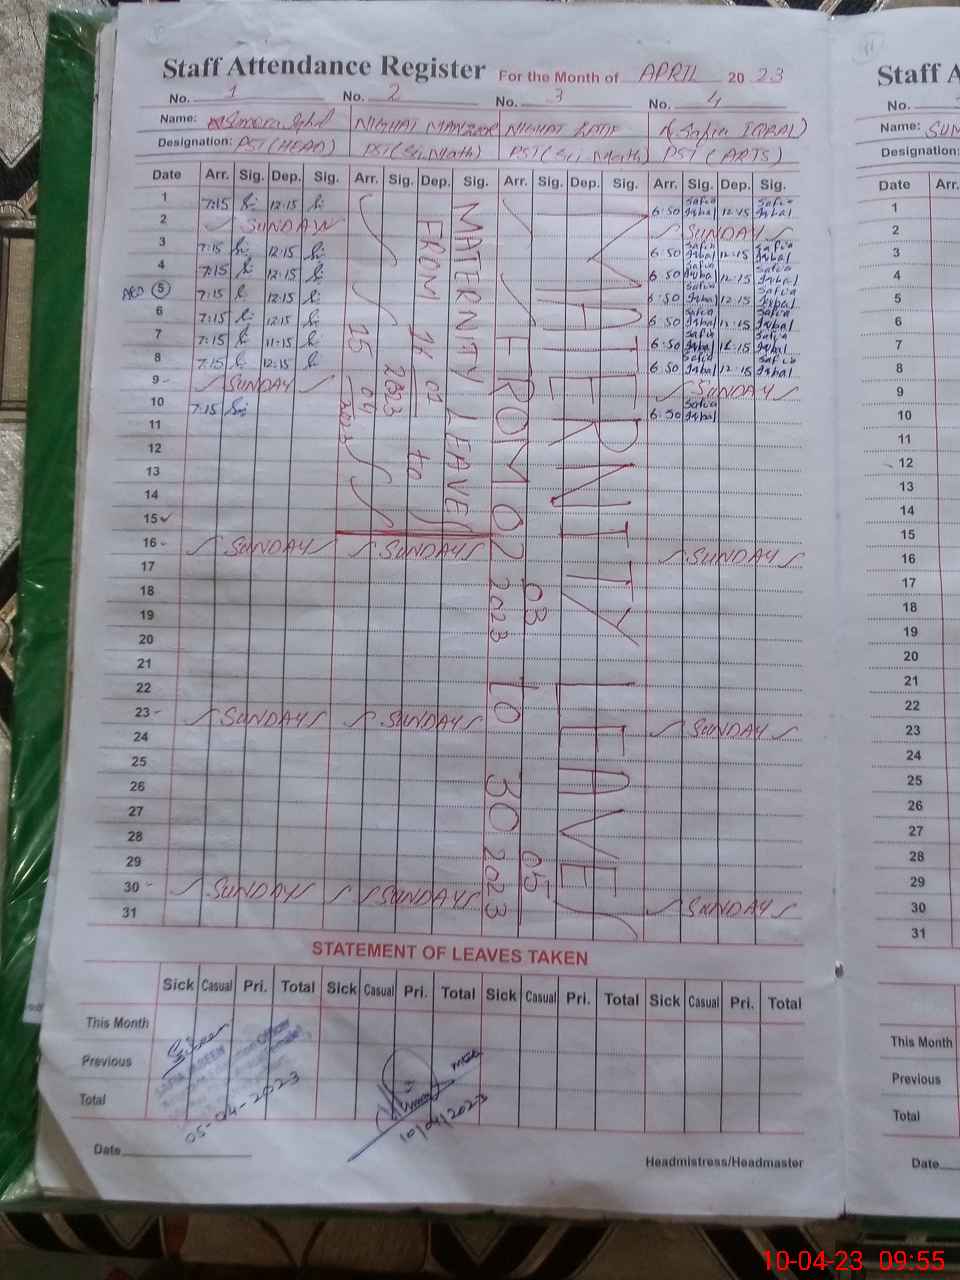 Staff Attendance Register For the Month of APRIL 20 23
No. 1 No. 2 No. 3 No. 4
Name: Iqbal NIGHAT MANZOOR NIGHAT LATIF Safia IQBAL
Designation: PST(HEAD) PST(Sci.Math) PST(Sci.Math) PST(ARTS)
Date Arr. Sig. Dep. Sig. Arr. Sig. Dep. Sig. Arr. Sig. Dep. Sig. Arr. Sig. Dep. Sig.
1 7:15 12:15 6:50 Safia Iqbal 12:15 Safia Iqbal
2 SUNDAY SUNDAY
3 7:15 12:15 6:50 Safia Iqbal 12:15 Safia Iqbal
4 7:15 12:15 6:50 Safia Iqbal 12:15 Safia Iqbal
5 7:15 12:15 6:50 Safia Iqbal 12:15 Safia Iqbal
6 7:15 12:15 6:50 Safia Iqbal 12:15 Safia Iqbal
7 7:15 11:15 6:50 Safia Iqbal 12:15 Safia Iqbal
8 7:15 12:15 6:50 Safia Iqbal 12:15 Safia Iqbal
9 SUNDAY SUNDAY
10 7:15 6:50 Safia Iqbal
11
12
13
14
15
16 SUNDAY SUNDAY SUNDAY
17
18
19
20
21
22
23 SUNDAY SUNDAY SUNDAY
24
25
26
27
28
29
30 SUNDAY SUNDAY SUNDAY
31
MATERNITY LEAVE
FROM 16 01 2023 to
15 04 2023
MATERNITY LEAVE
FROM 02 03 2023 TO 30 05 2023
STATEMENT OF LEAVES TAKEN
Sick Casual Pri. Total Sick Casual Pri. Total Sick Casual Pri. Total Sick Casual Pri. Total
This Month
Previous
Total
05-04-2023
10/04/2023
Date
Headmistress/Headmaster
11
Staff A
No.
Name: SUM
Designation:
Date Arr.
1
2
3
4
5
6
7
8
9
10
11
12
13
14
15
16
17
18
19
20
21
22
23
24
25
26
27
28
29
30
31
This Month
Previous
Total
Date
10-04-23 09:55